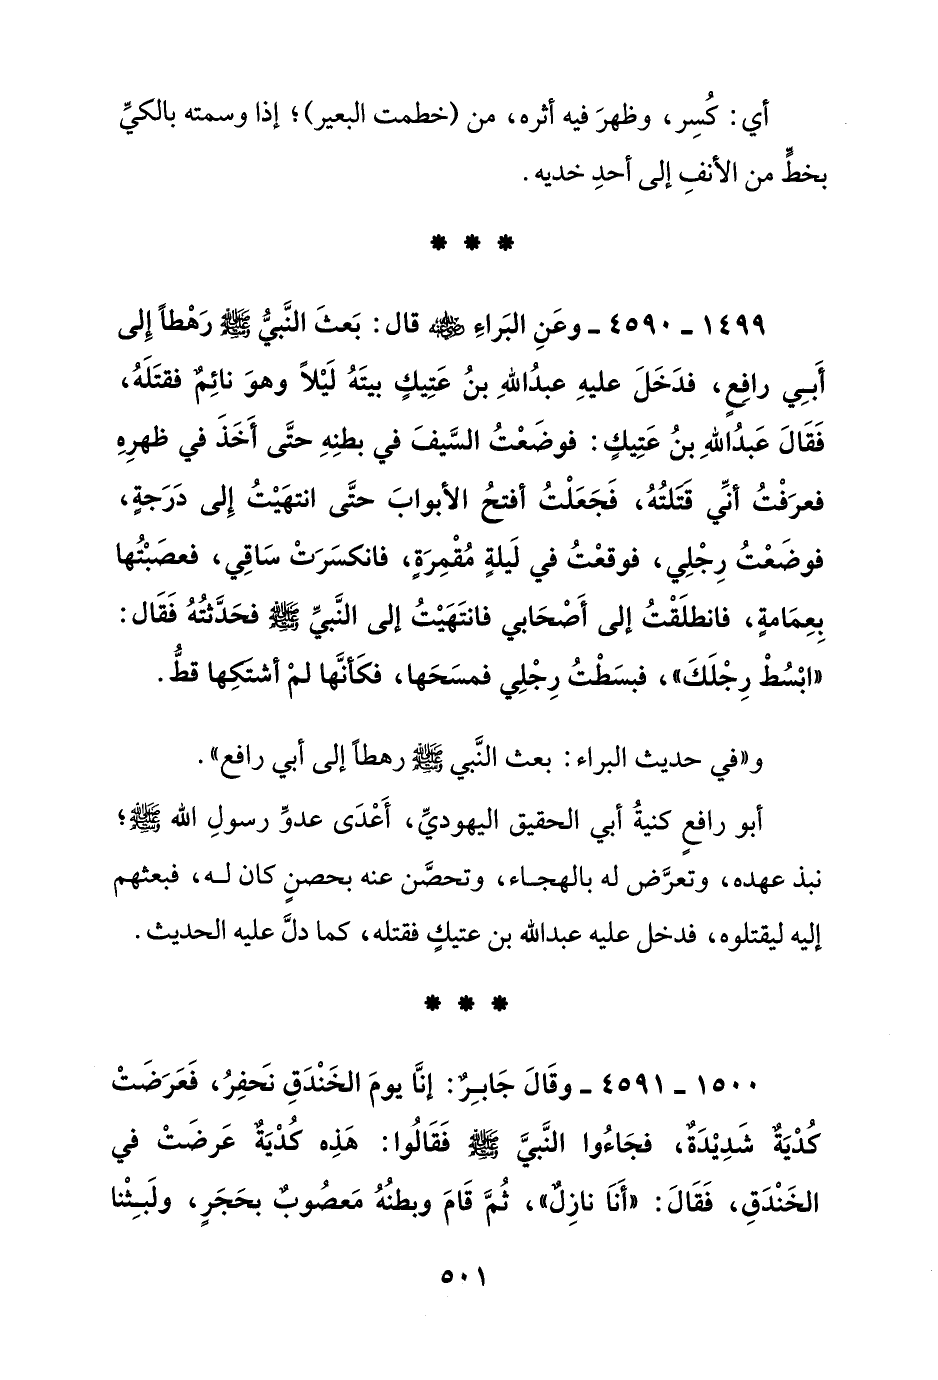 أي: كُسِر، وظهرَ فيه أثره، من (خطمت البعير)؛ إذا وسمته بالكيِّ
بخطٍّ من الأنفِ إلى أحدِ خديه.
* * *
١٤٩٩ - ٤٥٩٠ - وعَنِ البَراءِ ﵁ قال: بَعثَ النَّبيُّ ﷺ رَهْطاً إلى
أَبي رافِعٍ، فدَخَلَ عليهِ عبدُاللهِ بنُ عَتِيكٍ بيتَهُ لَيْلاً وهوَ نائِمٌ فقتَلَهُ،
فَقَالَ عَبدُاللهِ بنُ عَتِيكٍ: فوضَعْتُ السَّيفَ في بطنِهِ حتَّى أَخَذَ في ظهرِهِ
فعرَفْتُ أنِّي قَتَلتُهُ، فَجَعَلْتُ أفتحُ الأبوابَ حتَّى انتهَيْتُ إلى دَرَجةٍ،
فوضَعْتُ رِجْلِي، فوقعْتُ في لَيلةٍ مُقْمِرَةٍ، فانكسَرَتْ سَاقِي، فعصَبْتُها
بِعِمَامةٍ، فانطلَقْتُ إلى أَصْحَابي فانتَهَيْتُ إلى النَّبيِّ ﷺ فحَدَّثتُهُ فَقَال:
«ابْسُطْ رِجْلَكَ»، فبسَطْتُ رِجْلِي فمسَحَها، فكَأنَّها لمْ أشتَكِها قطُّ.
و«في حديث البراء: بعث النَّبي ﷺ رهطاً إلى أبي رافع».
أبو رافعٍ كنيةُ أبي الحقيق اليهوديِّ، أَعْدَى عدوِّ رسولِ الله ﷺ؛
نبذ عهده، وتعرَّض له بالهجاء، وتحصَّن عنه بحصنٍ كان له، فبعثهم
إليه ليقتلوه، فدخل عليه عبدالله بن عتيكٍ فقتله، كما دلَّ عليه الحديث.
* * *
١٥٠٠ - ٤٥٩١ - وقَالَ جَابِرٌ: إنَّا يومَ الخَنْدَقِ نَحفِرُ، فَعَرَضَتْ
كُدْيَةٌ شَدِيْدَةٌ، فجَاءُوا النَّبيَّ ﷺ فَقَالُوا: هَذِه كُدْيَةٌ عَرضَتْ في
الخَنْدَقِ، فَقَالَ: «أَنَا نازِلٌ»، ثُمَّ قَامَ وبطنُهُ مَعصُوبٌ بحَجَرٍ، ولَبِثْنا
٥٠١